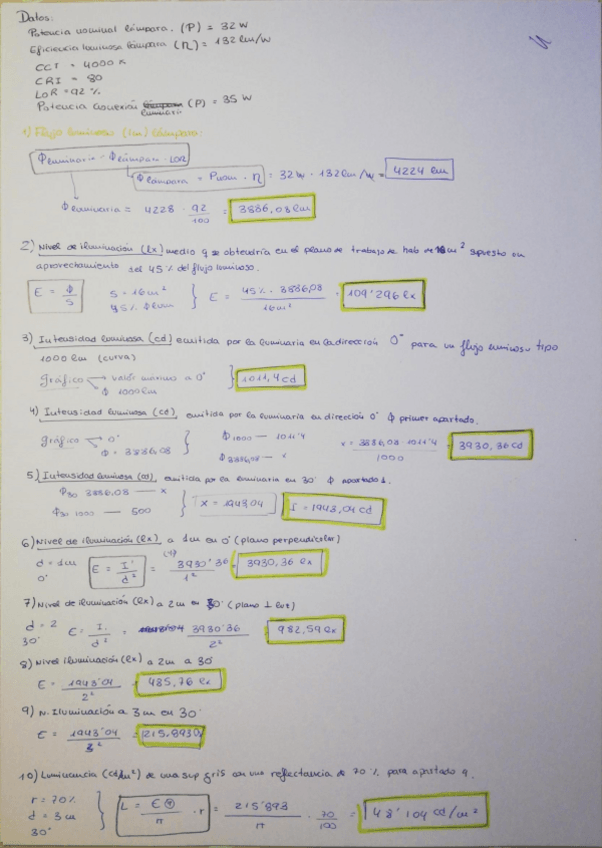 Datos:
Potencia nominal lámpara. (P) = 32 W
Eficiencia luminosa lámpara (η) = 132 lm/W
CCT = 4000 K
CRI = 80
LOR = 92 %
Potencia conexión luminaria (P) = 35 W
1) Flujo luminoso (lm) lámpara:
Φluminaria = Φlámpara · LOR
Φlámpara = Pnom · η = 32W · 132 lm/W = 4224 lm
Φluminaria = 4228 · 92/100 = 3886,08 lm
2) Nivel de iluminación (lx) medio q se obtendría en el plano de trabajo de hab de 16m² supuesto un
aprovechamiento del 45% del flujo luminoso.
E = Φ/S S = 16m² 45% Φlum } E = 45% · 3886,08 / 16m² = 109'296 lx
3) Intensidad luminosa (cd) emitida por la luminaria en la dirección 0° para un flujo luminoso tipo
1000 lm (curva)
Gráfico valor máximo a 0° Φ 1000lm } 1011,4 cd
4) Intensidad luminosa (cd), emitida por la luminaria en dirección 0° Φ primer apartado.
Gráfico 0° Φ = 3886,08 } Φ1000 — 1011'4 Φ3886,08 — x x = 3886,08 · 1011'4 / 1000 = 3930,36 cd
5) Intensidad luminosa (cd), emitida por la luminaria en 30° Φ apartado 1.
Φ30 3886,08 — x
Φ30 1000 — 500 } x = 1943,04 I = 1943,04 cd
6) Nivel de iluminación (lx) a 1m en 0° (plano perpendicular)
d = 1m 0° E = I/d² = 3930'36 / 1² = 3930,36 lx
7) Nivel de iluminación (lx) a 2m en 0° (plano ⊥ luz)
d = 2 30° E = I/d² = 3930'36 / 2² = 982,59 lx
8) Nivel iluminación (lx) a 2m a 30°
E = 1943'04 / 2² = 485,76 lx
9) N. Iluminación a 3m en 30°
E = 1943'04 / 3² = 215,8930
10) Luminancia (cd/m²) de una sup gris con una reflectancia de 70% para apartado 9.
r = 70% d = 3m 30° } L = E / π · r = 215'893 / π · 70/100 = 48'104 cd/m²